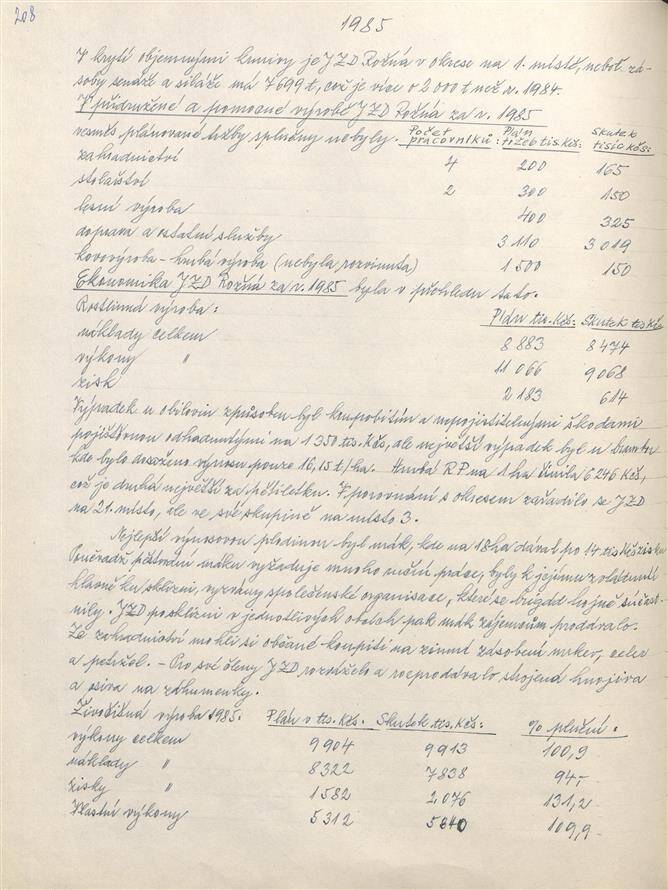 208
1985
V krytí objemnými krmivy je JZD Rožná v okrese na 1. místě, neboť zá-
soby senáže a siláže má 7699 t, což je více o 2000 t než r. 1984.
V přidružené a pomocné výrobě JZD Rožná za r. 1985
vesměs plánované tržby splněny nebyly. Počet pracovníků: Plán tržeb tis. Kčs: Skutek tisíc Kčs:
zahradnictví 4 200 165
stolařství 2 300 150
lesní výroba 400 325
doprava a ostatní služby 3 110 3 019
kovovýroba - hrubá výroba (nebyla rozvinuta) 1 500 150
Ekonomika JZD Rožná za r. 1985 byla v přehledu tato.
Rostlinná výroba: Plán tis. Kčs: Skutek tis Kčs
náklady celkem 8 883 8 474
výkony " 11 066 9 068
zisk 2 183 614
Výpadek u obilovin způsoben byl krupobitím a nepojistitelnými škodami
pojišťovnou odhadnutými na 1350 tis. Kčs, ale největší výpadek byl u brambor
kde bylo dosaženo výnosu pouze 16,15 t/ha. Hrubá RP na 1 ha činila 6246 Kčs,
což je druhá největší za pětiletku. V porovnání s okresem zařadilo se JZD
na 21. místo, ale ve své skupině na místo 3.
Nejlepší výnosovou plodinou byl mák, kde na 18 ha dával po 14 tis Kčs zisku
Poněvadž pěstování máku vyžaduje mnoho ruční práce, byly k jejímu zvládnutí
hlavně ku sklizni, vyzvány společenské organisace, které se brigád hojně súčast-
nily. JZD po sklizni v jednotlivých obcích pak mák zájemcům prodávalo.
Ze zahradnictví mohli si občané koupiti na zimní zásobení mrkev, celer
a petržel. - Pro své členy JZD rozváželo a rozprodávalo strojená hnojiva
a osiva na záhumenky.
Živočišná výroba 1985. Plán v tis. Kčs. Skutek tis. Kčs: % plnění.
výkony celkem 9904 9913 100,9
náklady " 8322 7838 94,-
zisky " 1582 2076 131,2
Vlastní výkony 5312 5840 109,9